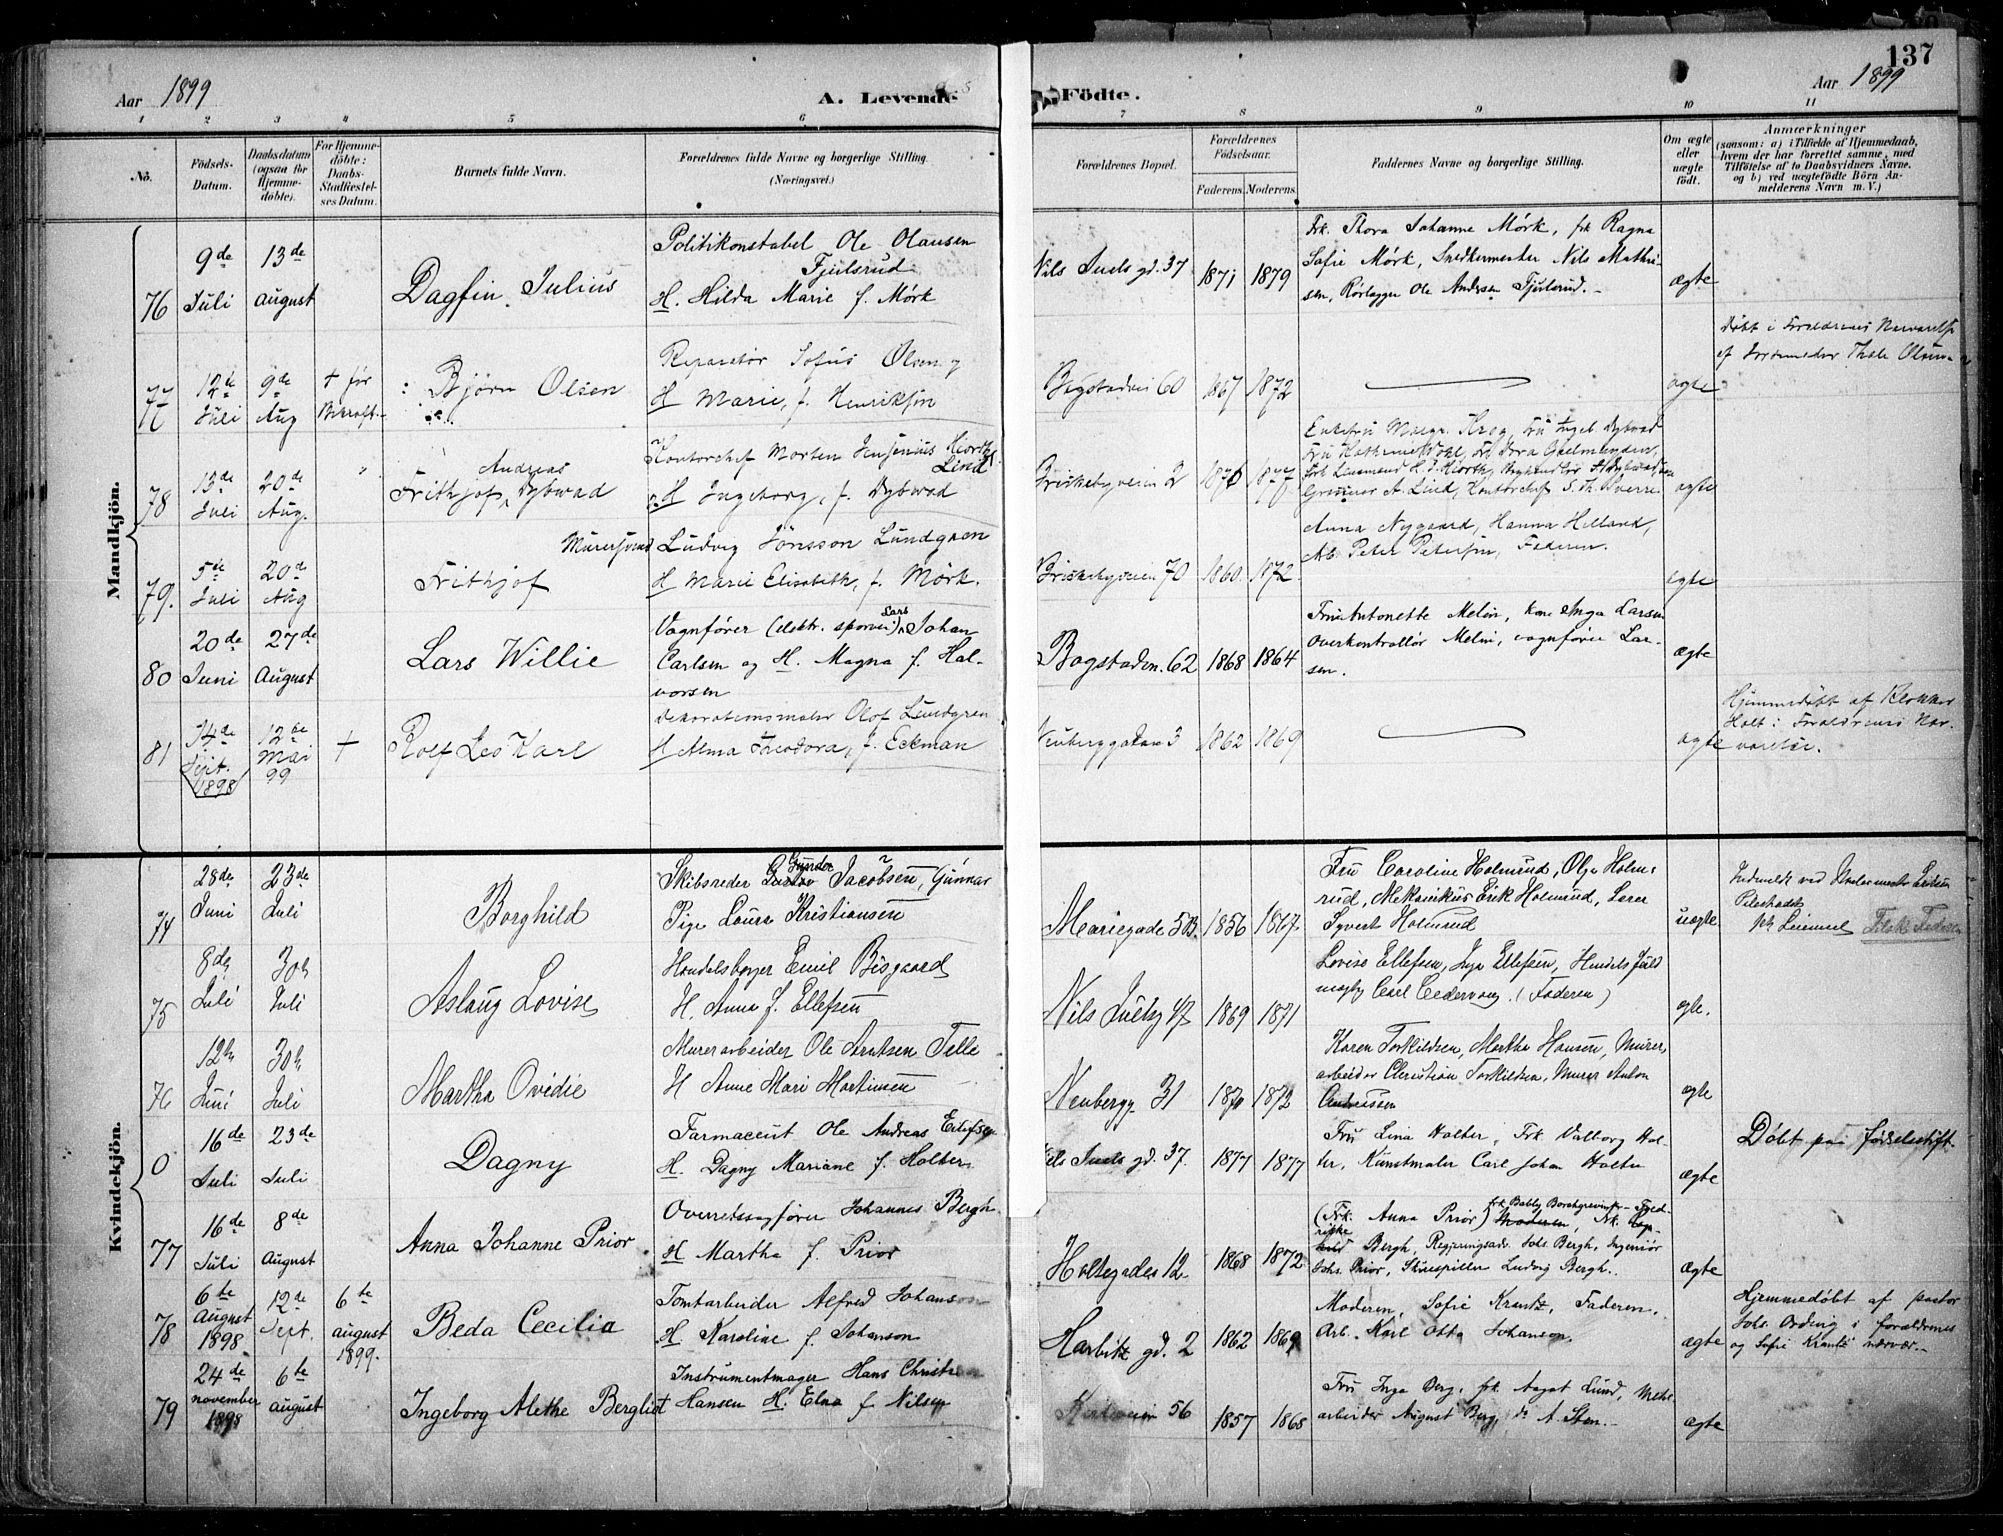 137
Aar 1899
A. Levende
Födte.
Aar 1899
1 2 3 4 5 6 7 8 9 10 11
No.
Födsels-
Datum.
Daabsdatum
(ogsaa for
Hjemme-
döbte).
For Hjemme-
döbte:
Daabs-
Stadfæstel-
ses Datum.
Barnets fulde Navn.
Forældrenes fulde Navne og borgerlige Stilling.
(Næringsvei.)
Forældrenes Bopæl.
Forældrenes
Födselsaar.
Faderens. Moderens.
Faddernes Navne og borgerlige Stilling.
Om ægte
eller
uægte
födt.
Anmærkninger
(saasom: a) i Tilfælde af Hjemmedaab,
hvem der har forrettet samme, med
Tilföielse af to Daabsvidners Navne,
og b) ved uægtefödte Börn An-
melderens Navn m. V.)
Mandkjön.
76
9de
Juli
13de
August
Dagfin Julius
Politikonstabel Ole Olausen
Fjeilsrud
H. Hilda Marie f. Mörk
Nils Juels gd. 37
1871
1879
Frk. Thora Johanne Mörk, frk Ragna
Sofie Mörk, Snedkermester Nils Mathi-
sen, Rörlægger Ole Andersen Fjeilsrud.
ægte
77
12te
Juli
9de
Aug
+ för
Bekræft.
Björn Olsen
Reparatör Sofus Olsen og
H Marie, f. Henriksen
Bogstadvei 60
1867
1872
ægte
Döbt i Forældrenes Nærværelse
af Jordemoder Thale Olsen
78
13de
Juli
20de
Aug.
Andreas
Frithjof Dybwad
Kontorchef Morten Jensenius Hiorth
Lind
H Ingeborg, f. Dybwad
Briskebyveien 2
1870
1877
Enkefru Margr. Krog, Fru Inger Dybwad
ægte
79.
5te
Juli
20de
Aug
Frithjof
Murersvend Ludvig Jönsson Lundgren
H Marie Elisabeth, f. Mörk.
Briskebyveien 70
1860
1872
Anna Nygaard, Hanna Hilland,
Arb. Peter Petersen, Faderen.
ægte
80
20de
Juni
27de
August
Lars Willie
Vognförer (elektr. sporvei) Lars Johan
Carlsen og H. Magna f. Hal-
vorsen
Bogstadvn. 62
1868
1864
Fru Antonette Melin, kone Inga Larsen
Overkontrollör Melin, vognförer Lar-
sen.
ægte
81
14de
Sept.
1898
12te
Mai
99
+
Rolf Leo Karl
Dekorationsmaler Olof Lundgren
H Alma Theodora, f. Eckman
Neuberggaden 3
1862
1869
ægte
Hjemmedöbt af Klokker
Holt i Forældrenes Nær-
værelse.
Kvindekjön.
74
28de
Juni
23de
Juli
Borghild
Skibsreder Gunder Jacobsen, Gunnar
Pige Laura Kristiansen
Mariegade 5B.
1856
1867
Fru Caroline Holmrud, Olga Holm-
rud, Mekanikus Erik Holmrud, Lærer
Syvert Holmrud
uægte
75
8de
Juli
30te
Juli
Aslaug Lovise
Handelsborger Emil Bisgaard
H. Anna f. Ellefsen
Nils Juelsg 47
1869
1871
Lovise Ellefsen, Inga Ellefsen, Handelsfuld
mægtg Carl Cedervang. (Faderen)
ægte.
76
12te
Juni
30te
Juli
Martha Ovidie
Murerarbeider Ole Arntsen Telle
H Anne Mari Martinsen
Neubergg 31
1870
1872
Karen Torkildsen, Martha Hansen, Murer
arbeider Christian Torkildsen, Murer Anton
Andreassen
ægte
0
16de
Juli
23de
Juli
Dagny
Farmaceut Ole Andreas Eilefsen
H. Dagny Mariane f. Holter
Nils Juels gd. 37.
1877
1877
Fru Lina Holter, Frk Valborg Hol-
ter, Kunstmaler Carl Johan Holter
ægte
Döbt paa födselsstift.
77
16de
Juli
8de
August
Anna Johanne Prior
Overretssagförer Johannes Bergh
H Martha f. Prior
Holtegaden 12
1868
1872
(Frk. Anna Prior) Moderen,
Bergh, Regjeringsadv. Johs. Bergh, Ingeniör
Johs. Prior, Skuespiller Ludvig Bergh.
ægte
78
6te
August
1898
12de
Sept.
6te
august
1899.
Beda Cecilia
Tomtarbeider Alfred Johanson
H Karoline f. Johanson
Harbitz gd. 2
1862
1869
Moderen, Sofie Krantz, Faderen.
Arb. Karl Otto Johanson.
ægte
Hjemmedöbt af pastor
Johs. Ording i forældrenes
og Sofie Krantz nærvær.
79
24de
november
1898
6te
august
Ingeborg Alethe Bergliot
Instrumentmager Hans Christian
Hansen H. Elna f Nilsen
56
1857
1868
Fru Inga Berg, frk. Aagot Lund, Mek.
arbeider August Berg, do A. Sten.
ægte